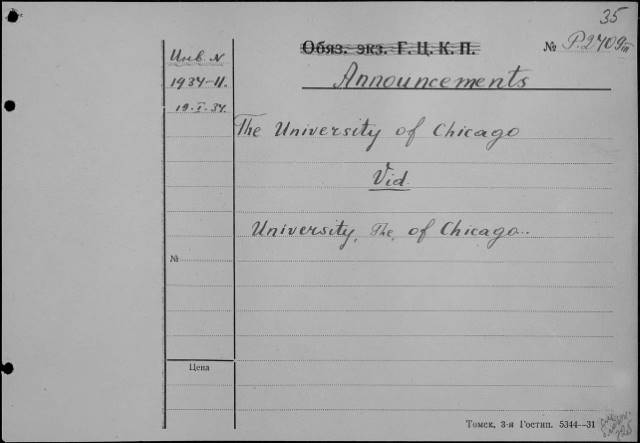 35
Инв. N
Обяз. экз. Г. Ц. К. П.
№ P.2409
1934-II.
Announcements
19.I.34.
The University of Chicago
Vid.
University, The, of Chicago..
№
Цена
Томск, 3-я Гостип. 5344—31